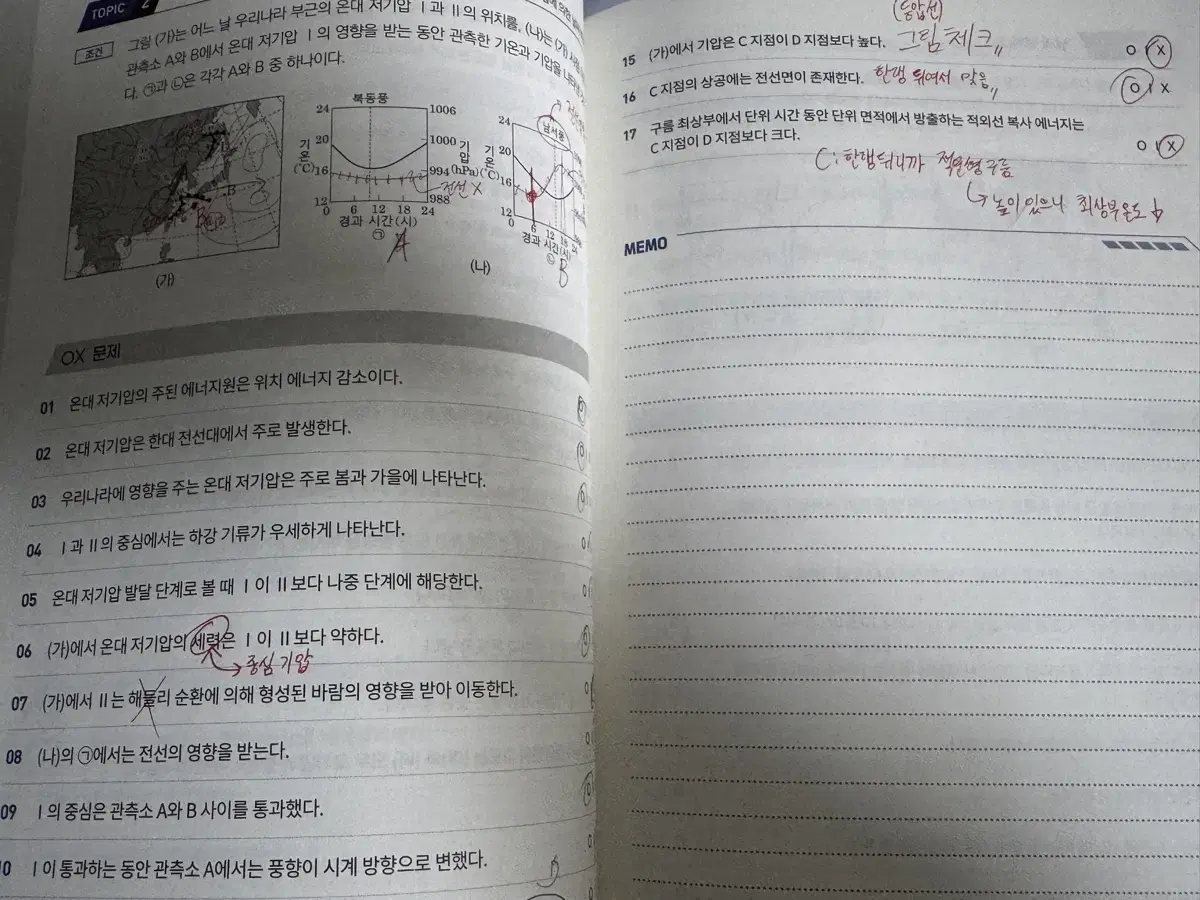 TOPIC 2
조건
그림 (가)는 어느 날 우리나라 부근의 온대 저기압 Ⅰ과 Ⅱ의 위치를, (나)는 (가)
관측소 A와 B에서 온대 저기압 Ⅰ의 영향을 받는 동안 관측한 기온과 기압을
다. ㉠과 ㉡은 각각 A와 B 중 하나이다.
북동풍
24 1006
20 1000
16 994
12 988
기온(℃)
기압(hPa)
0 6 12 18 24
경과 시간(시)
㉠
전선 X
A
남서풍
24
20
16
12
기온(℃)
0 6 12 18 24
경과 시간(시)
㉡
B
(가)
(나)
OX 문제
01 온대 저기압의 주된 에너지원은 위치 에너지 감소이다.
02 온대 저기압은 한대 전선대에서 주로 발생한다.
03 우리나라에 영향을 주는 온대 저기압은 주로 봄과 가을에 나타난다.
04 Ⅰ과 Ⅱ의 중심에서는 하강 기류가 우세하게 나타난다.
05 온대 저기압 발달 단계로 볼 때 Ⅰ이 Ⅱ보다 나중 단계에 해당한다.
06 (가)에서 온대 저기압의 세력은 Ⅰ이 Ⅱ보다 약하다.
중심 기압
07 (가)에서 Ⅱ는 해들리 순환에 의해 형성된 바람의 영향을 받아 이동한다.
08 (나)의 ㉠에서는 전선의 영향을 받는다.
09 Ⅰ의 중심은 관측소 A와 B 사이를 통과했다.
10 Ⅰ이 통과하는 동안 관측소 A에서는 풍향이 시계 방향으로 변했다.
(등압선)
15 (가)에서 기압은 C 지점이 D 지점보다 높다. 그림 체크 O X
16 C 지점의 상공에는 전선면이 존재한다. 한랭 뒤여서 맞음 O X
17 구름 최상부에서 단위 시간 동안 단위 면적에서 방출하는 적외선 복사 에너지는
C 지점이 D 지점보다 크다. O X
C: 한랭 뒤니까 적운형 구름
높이 있으니 최상부 온도 ↓
MEMO